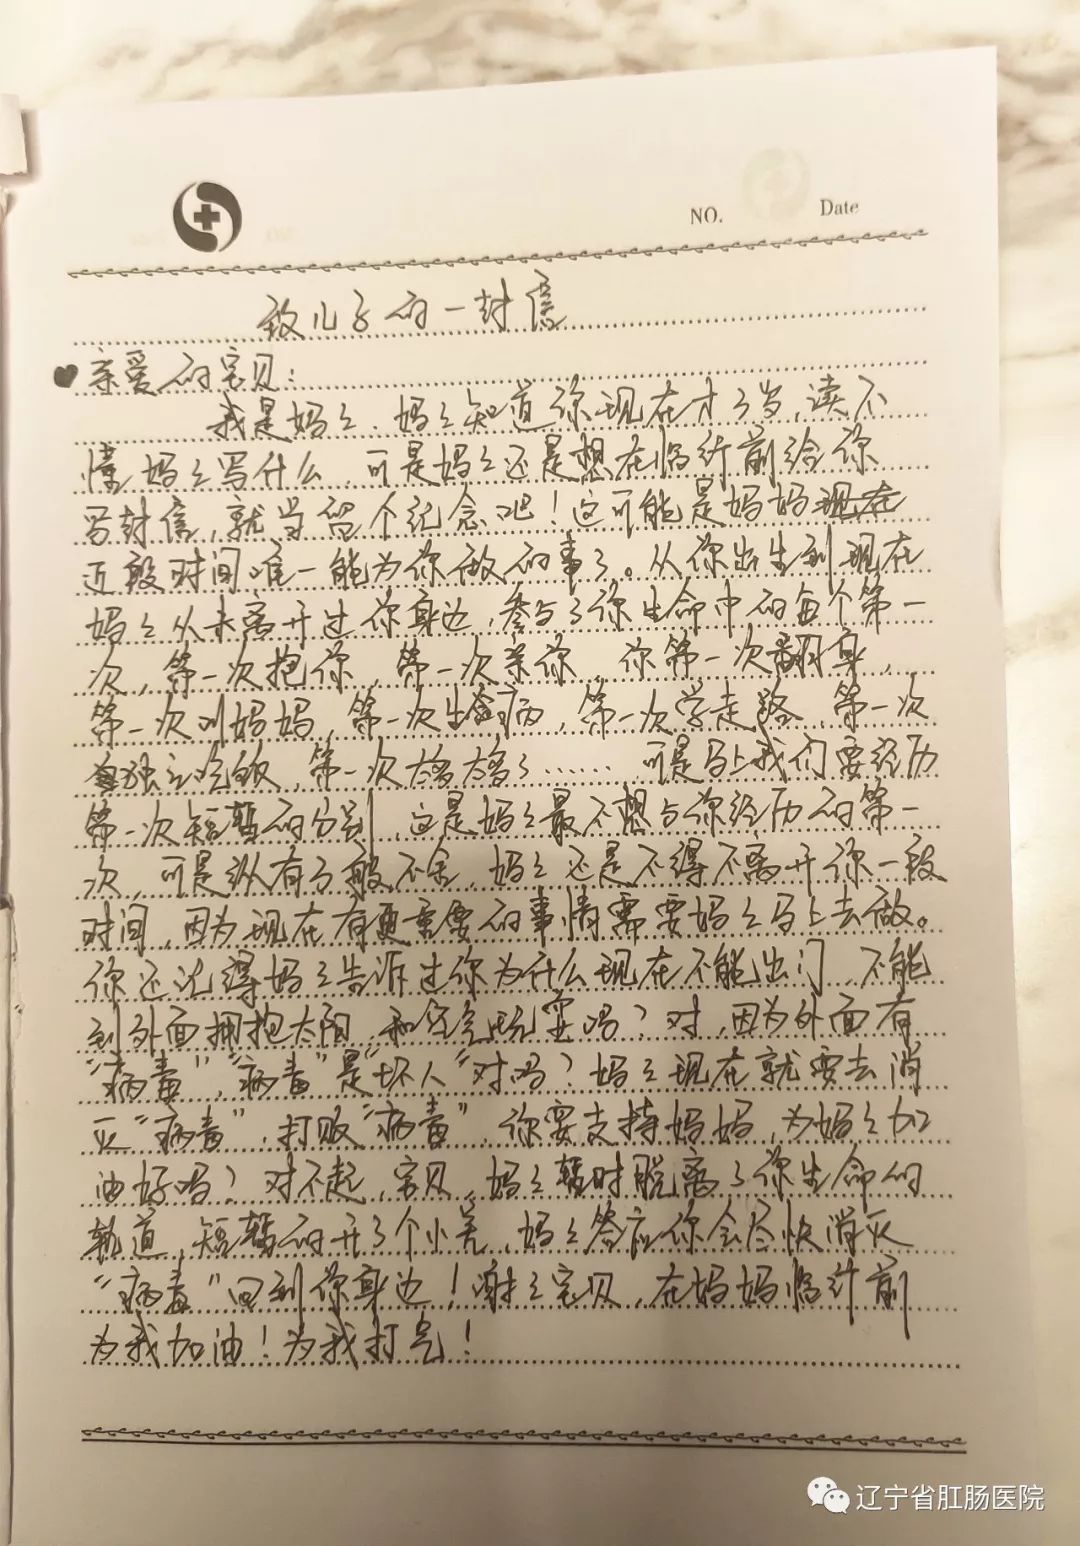 NO.
Date
致儿子的一封信
亲爱的宝贝:
我是妈妈。妈妈知道你现在才3岁,读不
懂妈妈写什么,可是妈妈还是想在临行前给你
写封信,就当留个纪念吧!这可能是妈妈现在
近段时间唯一能为你做的事了。从你出生到现在
妈妈从未离开过你身边,参与了你生命中的每个第一
次,第一次抱你,第一次亲你,你第一次翻身,
第一次叫妈妈,第一次生病,第一次学走路,第一次
独立吃饭,第一次……可是马上我们要经历
第一次短暂的分别,这是妈妈最不想与你经历的第一
次,可是纵有万般不舍,妈妈还是不得不离开你一段
时间,因为现在有更重要的事情需要妈妈马上去做。
你还记得妈妈告诉过你为什么现在不能出门,不能
到外面拥抱太阳,和空气玩耍吗?对,因为外面有
“病毒”,“病毒”是“坏人”对吗?妈妈现在就要去消
灭“病毒”,打败“病毒”,你要支持妈妈,为妈妈加
油好吗?对不起,宝贝,妈妈暂时脱离了你生命的
轨道,短暂的开了个小差,妈妈答应你会尽快消灭
“病毒”回到你身边!谢谢宝贝,在妈妈临行前
为我加油!为我打气!
辽宁省肛肠医院